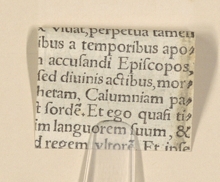 vitiat, perpetua tamen
ibus a temporibus apo-
accusandi Episcopos,
sed diuinis actibus, mor-
hetam, Calumniam pa-
t sordē. Et ego quasi ti-
im languorem suum, &
d regem vltorē. Et inse